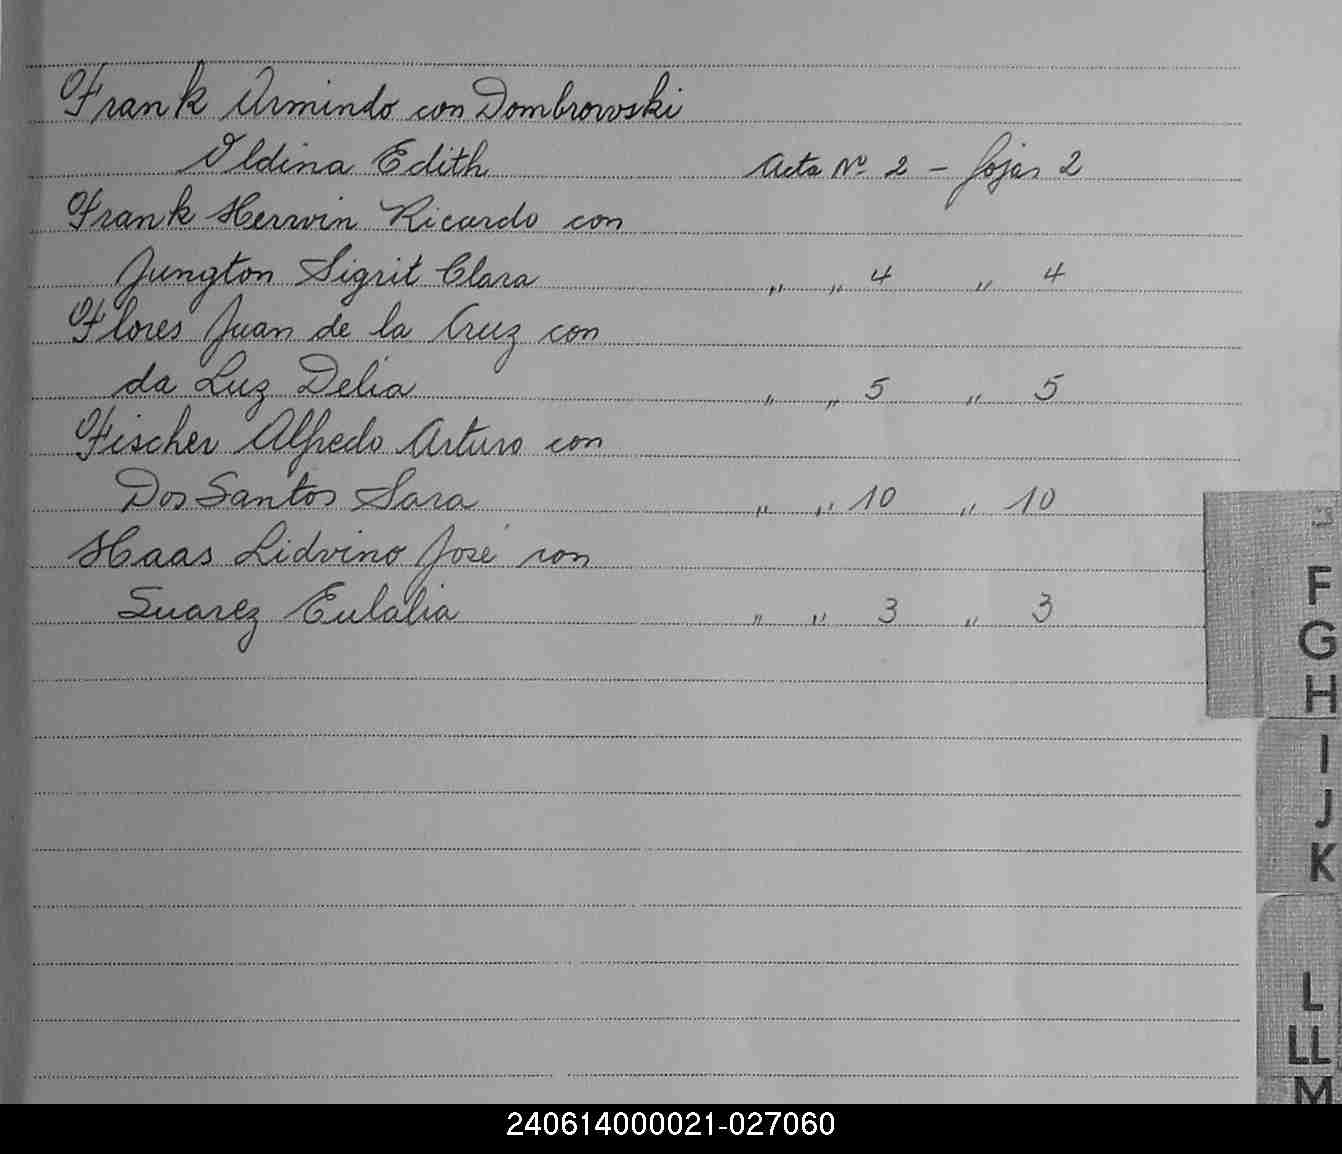 Frank Armindo con Dombrowski
Ildina Edith Acta Nº 2 - fojas 2
Frank Herwin Ricardo con
Jungton Sigrit Clara " " 4 " 4
Flores Juan de la Cruz con
da Luz Delia " " 5 " 5
Fischer Alfredo Arturo con
Dos Santos Sara " " 10 " 10
Haas Lidvino José con
Suarez Eulalia " " 3 " 3
F
G
H
I
J
K
L
LL
M
240614000021-027060